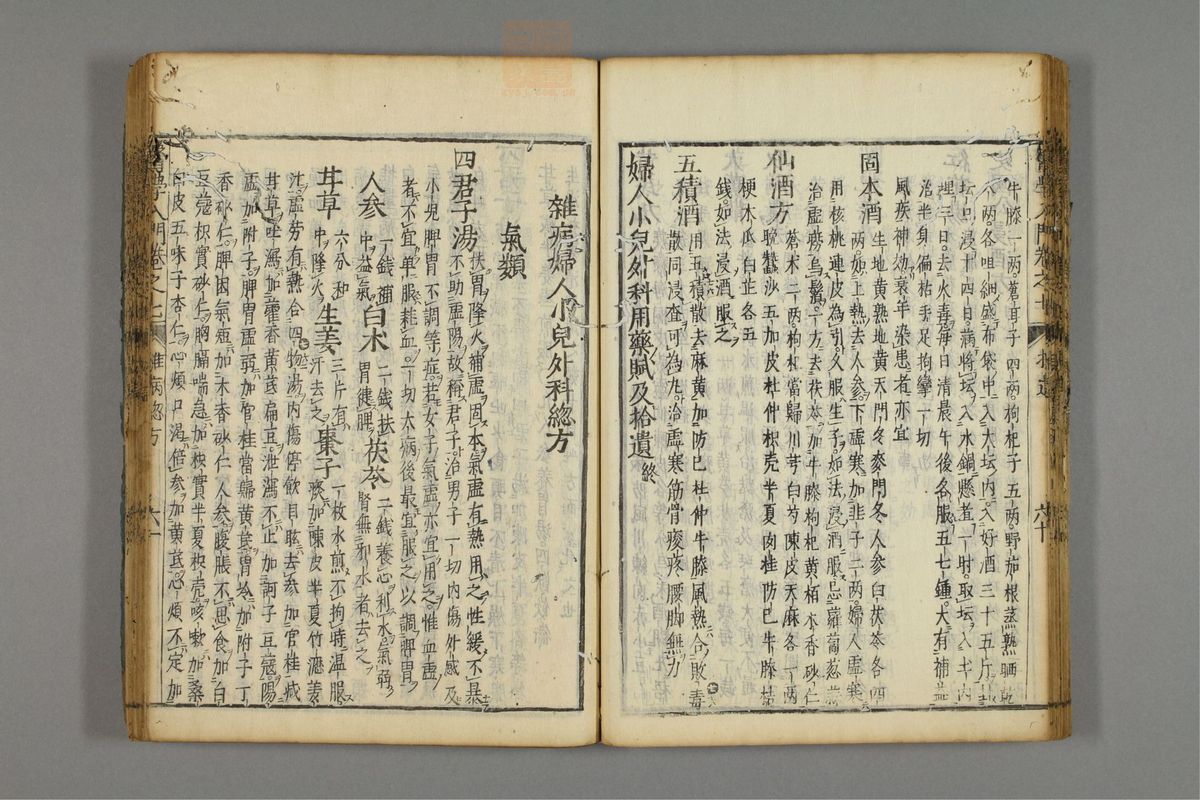 牛膝一兩蒼耳子四兩枸杞子五兩野茄根蒸熟晒乾
八兩各咀細盛布袋中入大坛內入好酒三十五斤封
坛口浸十四日病將坛入水鍋懸煮一時取坛入土內
埋三日去火毒每日清晨午後各服五七鍾大有補益
治半身偏枯手足拘攣一切
風疾神効衰年染患者亦宜
固本酒
生地黃熟地黃天門冬麥門冬人參白茯苓各四
兩如上熱去人參下虛寒加韭子二兩婦人虛寒
用核桃連皮為引久服生子如法浸酒服忌蘿蔔葱蒜
治虛癆烏鬚一方去茯苓加牛膝枸杞黃栢木香砂仁
仙酒方
蒼朮二兩枸杞當歸川芎白芍陳皮天麻各一兩
晚蠶沙五加皮杜仲枳壳半夏肉桂防己牛膝桔
梗木瓜白芷各五
錢如法浸酒服之
五積酒
用五積散去麻黃加防已杜仲牛膝風熱合敗毒
散同浸查可為丸治虛寒筋骨痠疼腰脚無力
婦人小兒外科用藥賦及拾遺終
醫學入門卷之七
拾遺
六十
雜病婦人小兒外科總方
氣類
四君子湯
扶胃降火補虛固本氣虛有熱用之性緩不暴
不助虛陽故稱君子治男子一切內傷外感及
小兒脾胃不調等症若女子氣虛亦宜用之惟血虛
者不宜單服耗血一切大病後最宜服之以調脾胃
人參
一錢補
中益氣
白朮
二錢扶
胃健脾
茯苓
二錢養心利水氣弱
腎無邪水者去之
甘草
六分和
中降火
生姜
三片有
汗去之
棗子
一枚水煎不拘時溫服
痰加陳皮半夏竹瀝姜
汁虛勞有熱合四物湯內傷停飲目眩去參加官桂減
甘草吐瀉加藿香黃芪扁豆泄瀉不止加訶子豆蔻陽
虛加附子脾胃虛弱加官桂當歸黃芪胃冷加附子丁
香砂仁脾困氣短加木香砂仁人參腹脹不思食加白
豆蔻枳實砂仁胸膈喘急加枳實半夏枳壳咳嗽加桑
白皮五味子杏仁心煩口渴倍參加黃芪心煩不定加
醫學入門卷之七
雜病總方
六十一